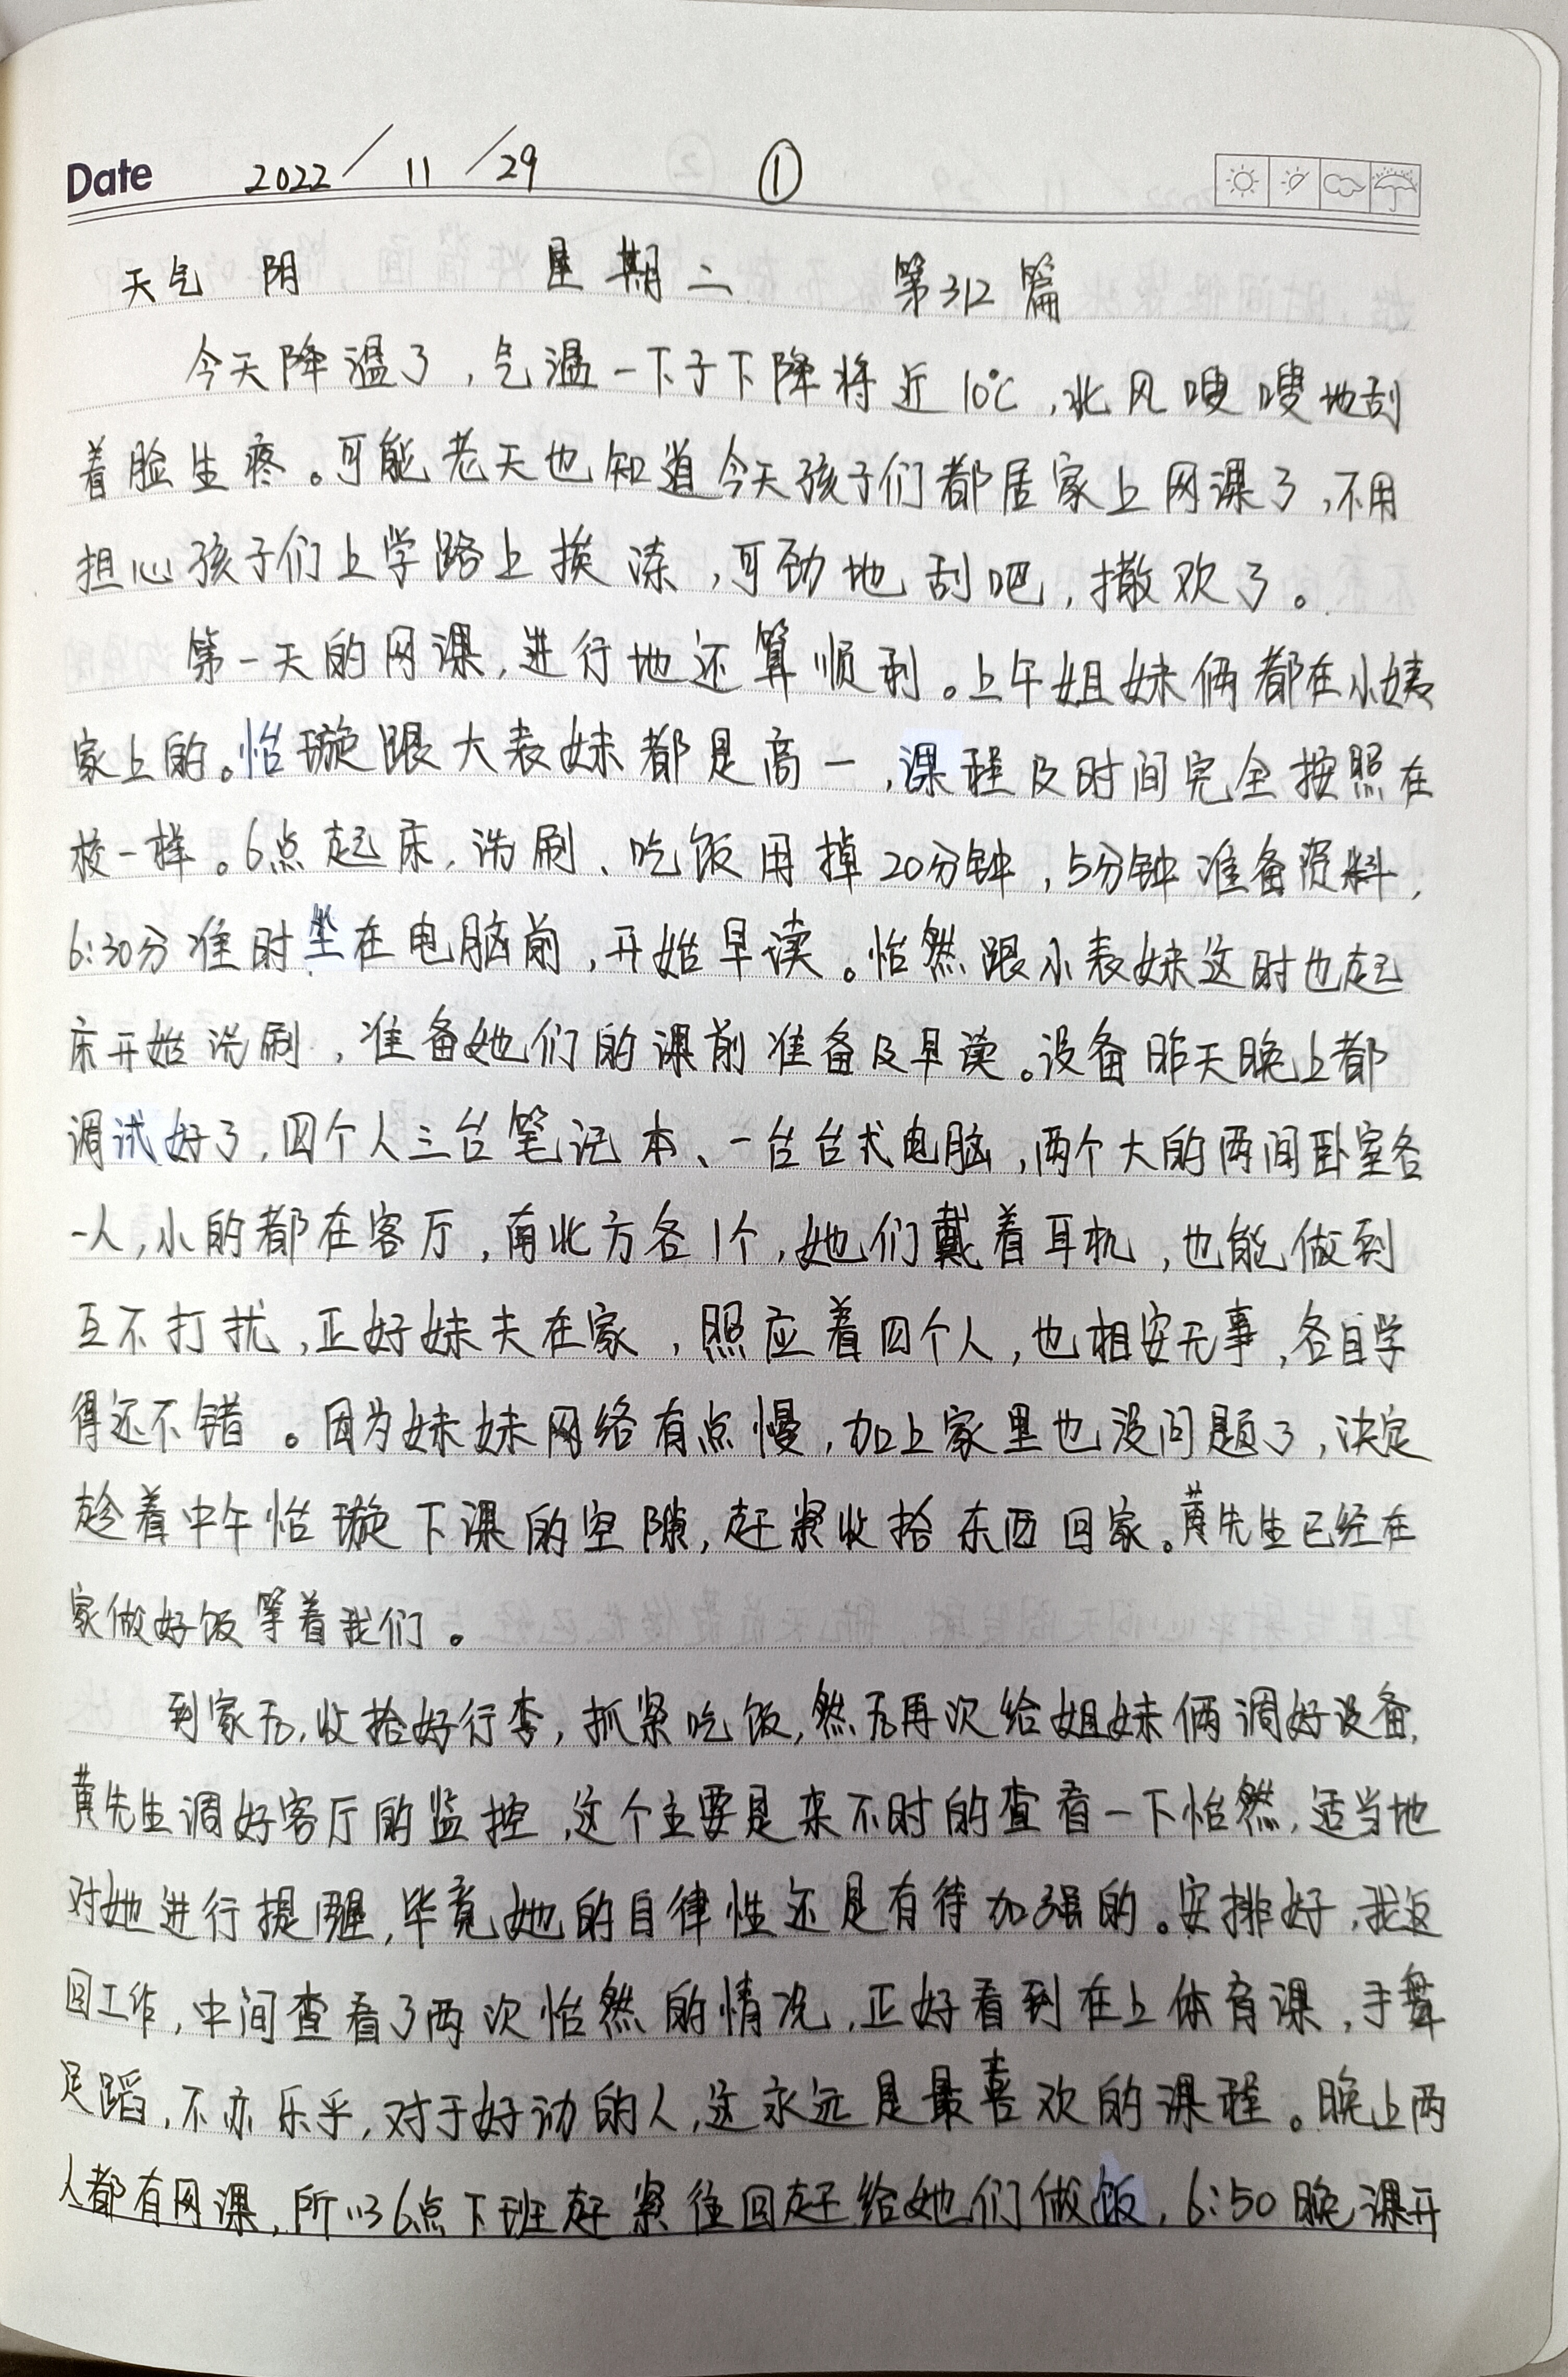 Date 2022/11/29 ①
天气 阴 星期二 第312篇
今天降温了,气温一下子下降将近10℃,北风嗖嗖地刮
着脸生疼。可能老天也知道今天孩子们都居家上网课了,不用
担心孩子们上学路上挨冻,可劲地刮吧,撒欢了。
第一天的网课,进行地还算顺利。上午姐妹俩都在小姨
家上的。怡璇跟大表妹都是高一,课程及时间完全按照在
校一样。6点起床,洗刷、吃饭用掉20分钟,5分钟准备资料,
6:30分准时坐在电脑前,开始早读。怡然跟小表妹这时也起
床开始洗刷,准备她们的课前准备及早读。设备昨天晚上都
调试好了,四个人三台笔记本、一台台式电脑,两个大的两间卧室各
一人,小的都在客厅,南北方各1个,她们戴着耳机,也能做到
互不打扰,正好妹夫在家,照应着四个人,也相安无事,各自学
得还不错。因为妹妹网络有点慢,加上家里也没问题了,决定
趁着中午怡璇下课的空隙,赶紧收拾东西回家。黄先生已经在
家做好饭等着我们。
到家后,收拾好行李,抓紧吃饭,然后再次给姐妹俩调好设备,
黄先生调好客厅的监控,这个主要是来不时的查看一下怡然,适当地
对她进行提醒,毕竟她的自律性还是有待加强的。安排好,我返
回工作,中间查看了两次怡然的情况,正好看到在上体育课,手舞
足蹈,不亦乐乎,对于好动的人,这永远是最喜欢的课程。晚上两
人都有网课,所以6点下班赶紧往回赶给她们做饭,6:50晚课开